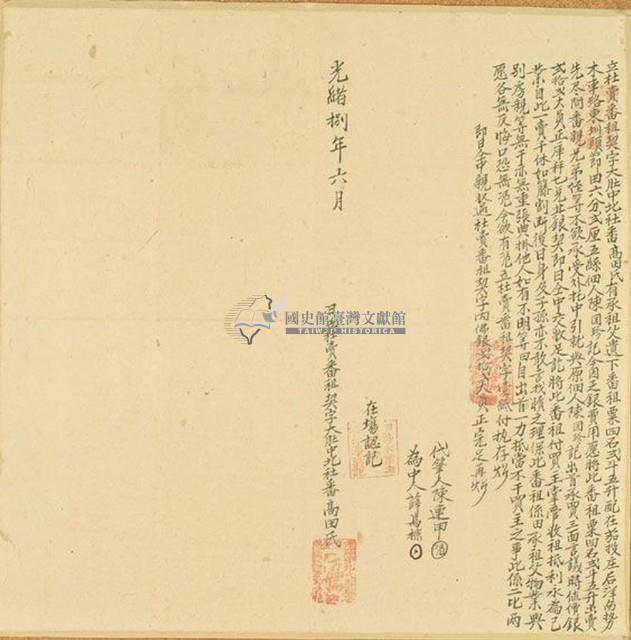 立杜賣番租契字大肚中北社番高田氏有承祖父遺下番租粟四石弍斗五升配在茄投庄后洋尚勢
木車路東圳頭節田六分弍厘五絲佃人陳因珍記今因乏銀費用愿將此番租粟四石弍斗五升出賣
先尽問番親兄弟侄等不欲承受外托中引就與原佃人陳因珍記出首承買三面言議時值價銀
弍拾弍大員正庫秤七兌其銀契即日仝中交收足訖將此番租付買主掌管收租抵利永為己
業自此一賣千休如藤割断後日身及子孫亦不敢言找贖之理保此番租係田承祖父物業與
別房親等無干亦無重張典掛他人如有不明等因自出首一力抵當不干買主之事此係二比兩
愿各無反悔口恐無憑今欲有憑立杜賣番租契字壹紙付执存炤
即日仝中親收過杜賣番租契字內佛銀弍拾弍大員正完足再炤
代筆人陳連甲
為中人薛萬標
在塲認記
光緒捌年六月
日立杜賣番租契字大肚中北社番高田氏
國史館臺灣文獻館
TAIWAN HISTORICA